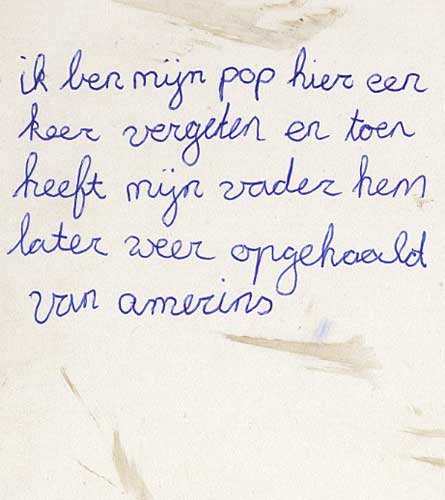 ik ben mijn pop hier een
keer vergeten en toen
heeft mijn vader hem
later weer opgehaald
van amerins